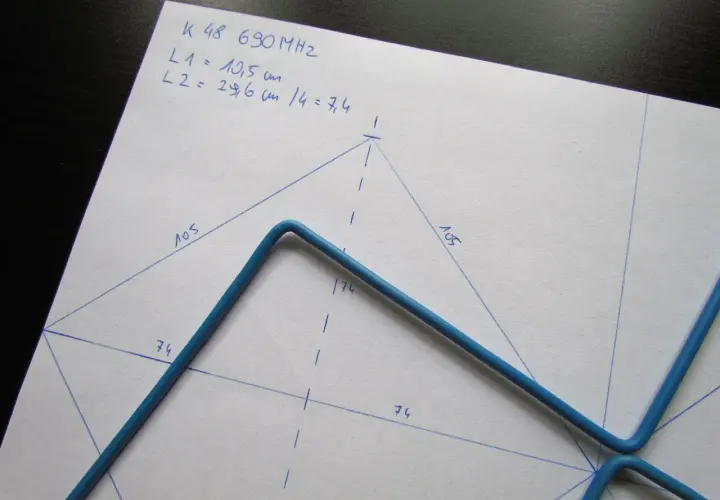 K 48 690MHz
L1 = 10,5 cm
L2 = 29,6 cm /4 = 7,4
105
105
74
74
74